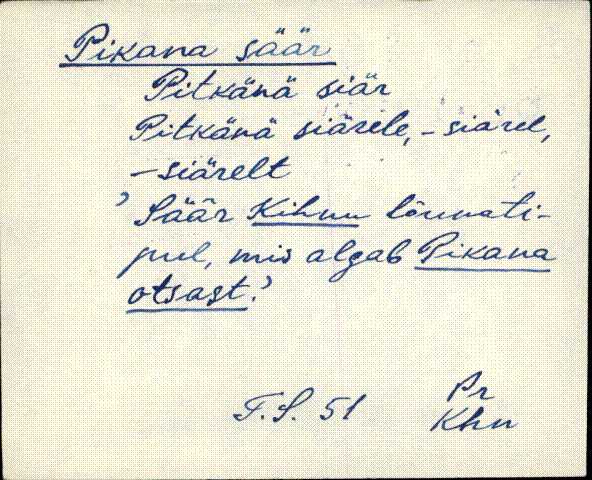 Pikana säär
Pitkänä siär
Pitkänä siärele, -siärel,
-siärelt
'Säär Kihnu lõunati-
pul, mis algab Pikana
otsast.'
T.S. 51 Pr
Khn